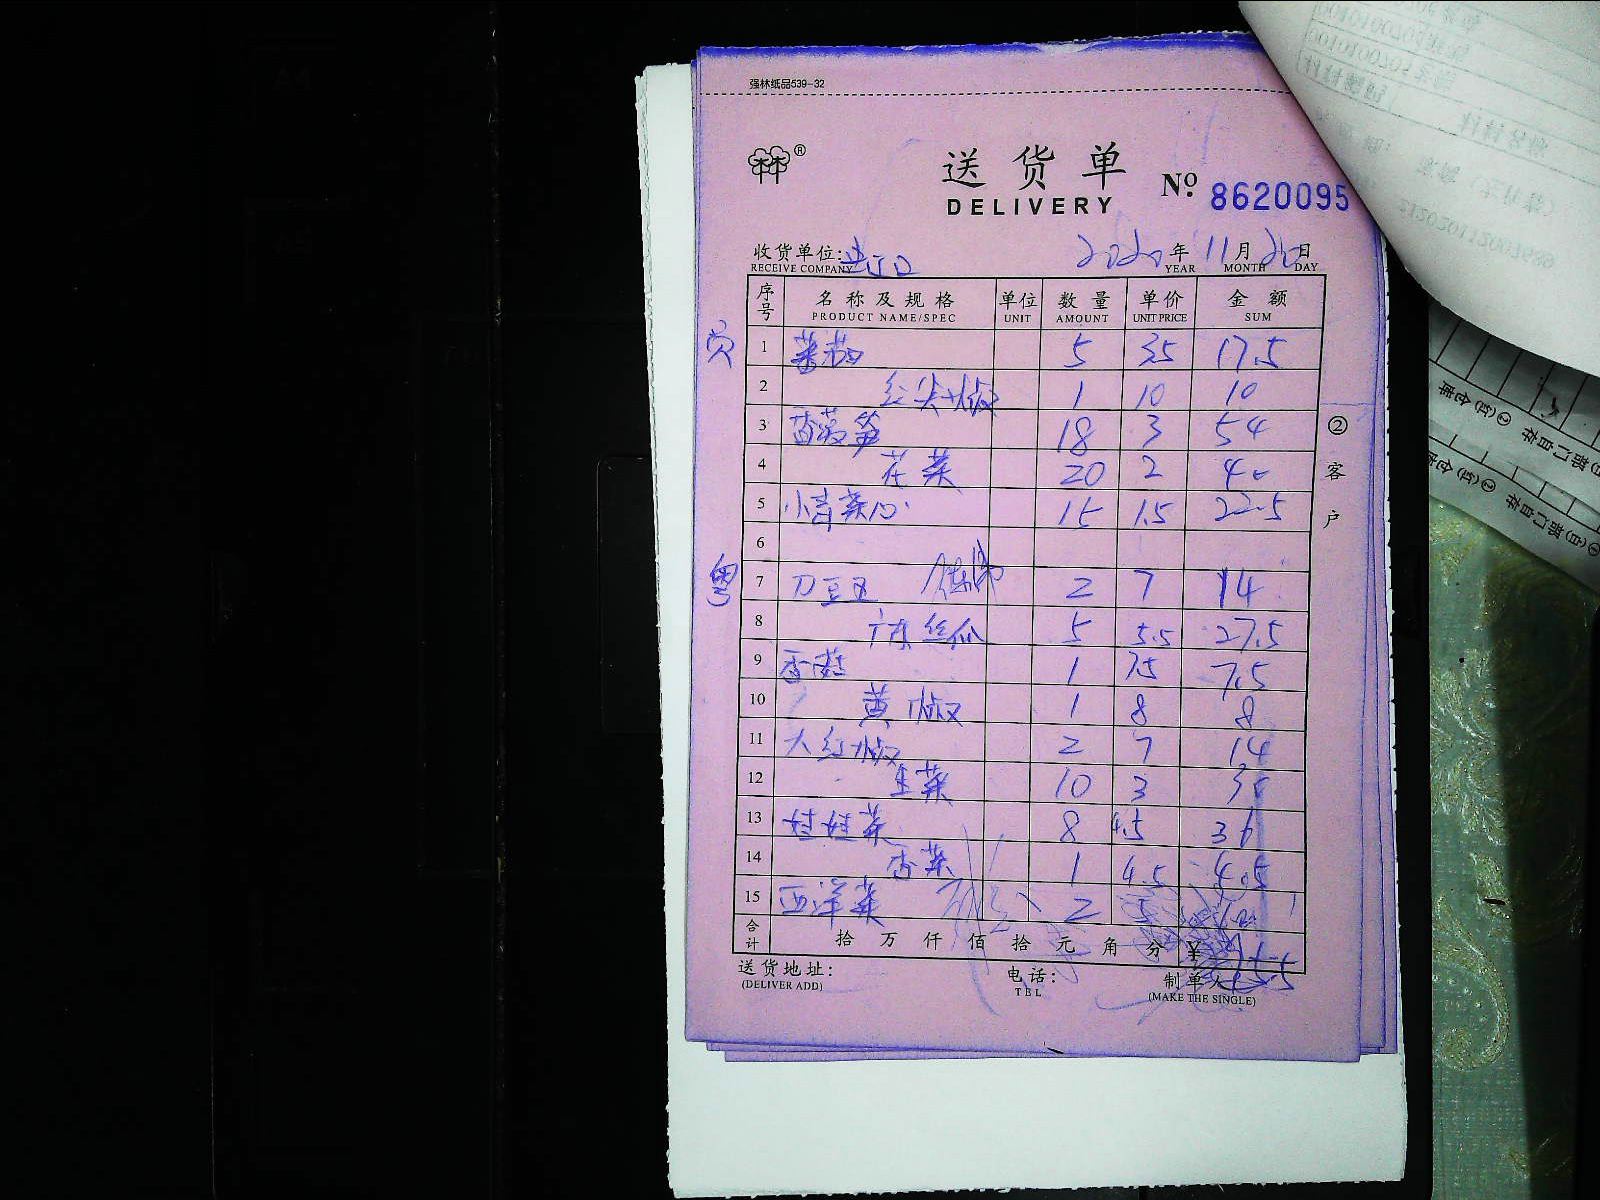 强林纸品539-32
林®
送货单
DELIVERY
No. 8620095
收货单位:
RECEIVE COMPANY
2020年11月20日
YEAR MONTH DAY
序号 名称及规格 单位 数量 单价 金额
PRODUCT NAME/SPEC UNIT AMOUNT UNIT PRICE SUM
1 5 3.5 17.5
2 红尖椒 1 10 10
3 18 3 54
4 20 2 40
5 小青菜心 15 1.5 22.5
6
粤
7 刀豆 2 7 14
8 广东丝瓜 5 5.5 27.5
9 香菇 1 7.5 7.5
10 黄椒 1 8 8
11 大红椒 2 7 14
12 生菜 10 3 30
13 娃娃菜 8 4.5 36
14 香菜 1 4.5 4.5
15 西洋菜 2 5
合计 拾 万 仟 佰 拾 元 角 分 ¥
②客户
送货地址: 电话: 制单人
(DELIVER ADD) TEL (MAKE THE SINGLE)